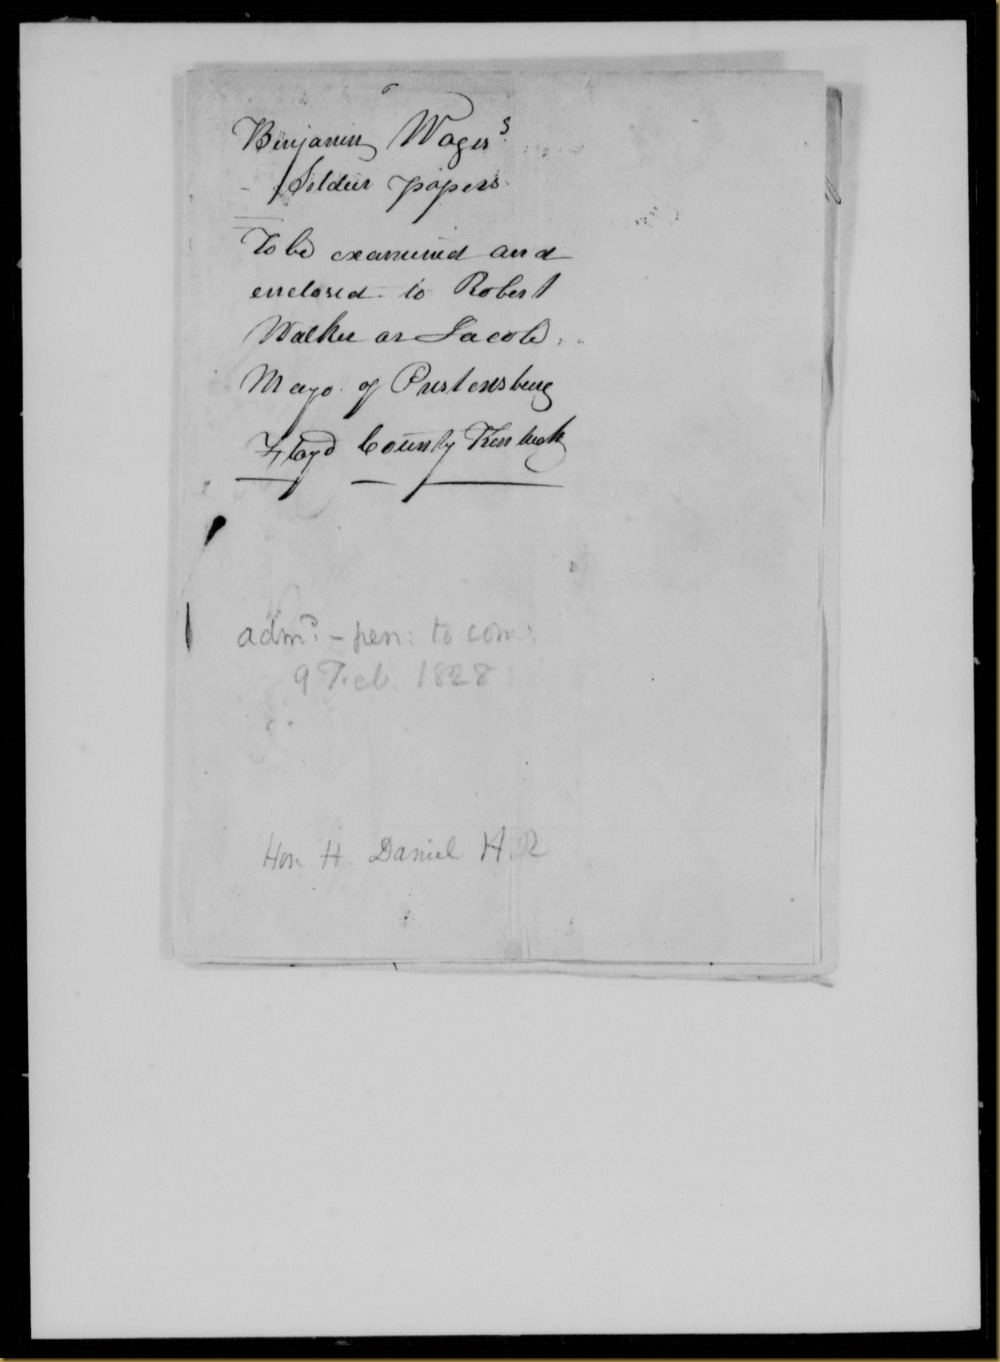 Benjamin Wagers
Soldier papers
To be examined and
enclosed to Robert
Walker or Jacob
Mayo of Prestonsburg
Floyd County Kentucky
admd: - pen: to com:
9 Feb. 1828
Hon H. Daniel H.R